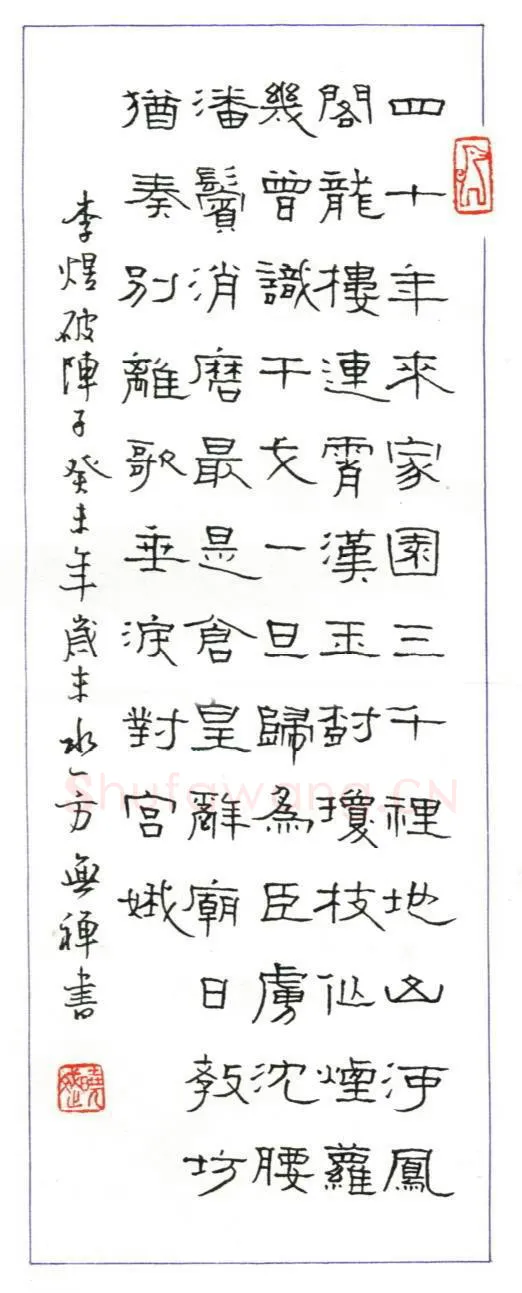 四十年来家園三千裡地山河鳳
閣龍樓連霄漢玉樹瓊枝似煙蘿
幾曾識干戈一旦歸為臣虜沈腰
潘鬢消磨最是倉皇辭廟日教坊
猶奏別離歌垂淚對宮娥
李煜破陣子癸未年歲末水一方無禪書
Shufawang.CN